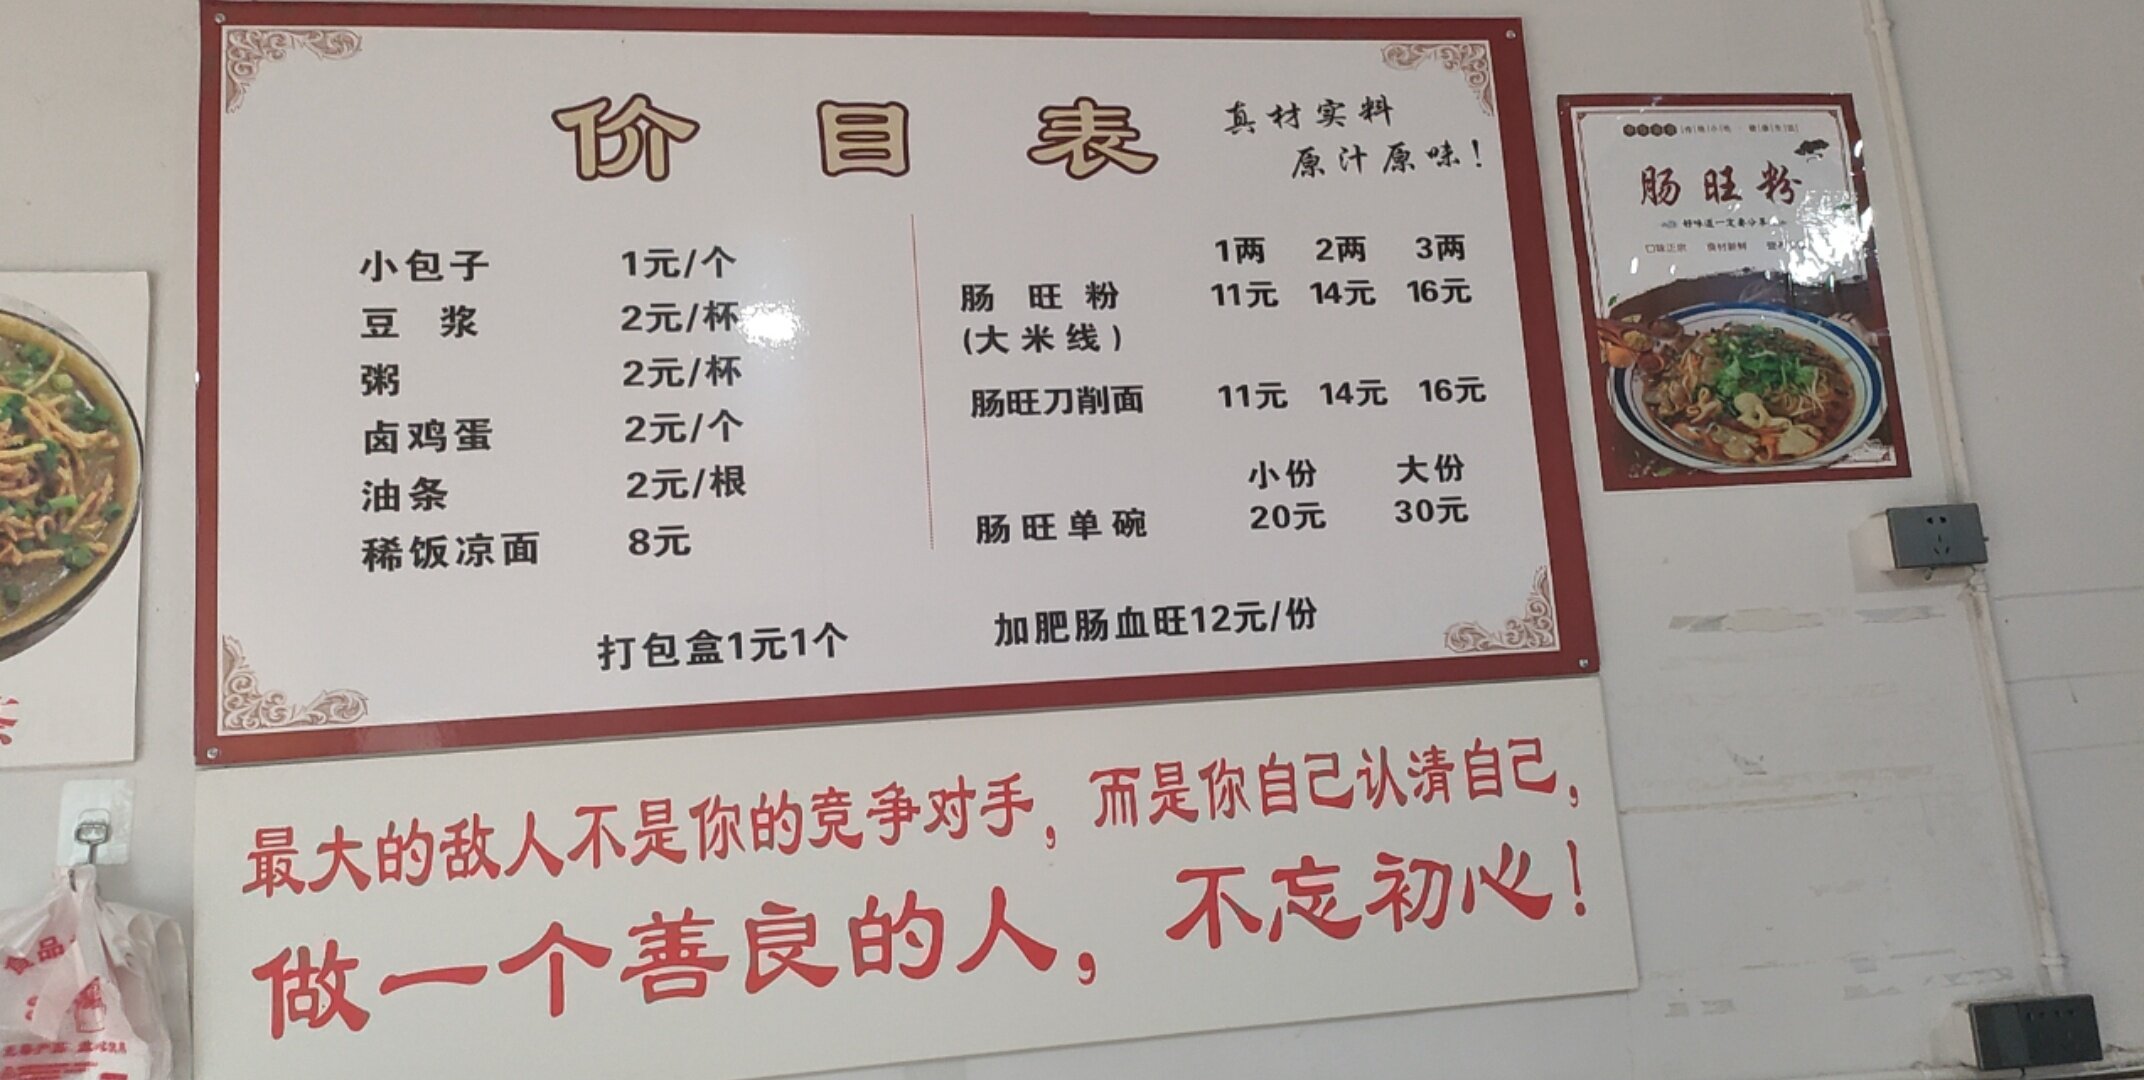 价目表
真材实料
原汁原味!
小包子 1元/个
豆浆 2元/杯
粥 2元/杯
卤鸡蛋 2元/个
油条 2元/根
稀饭凉面 8元
1两 2两 3两
肠旺粉 11元 14元 16元
(大米线)
肠旺刀削面 11元 14元 16元
小份 大份
肠旺单碗 20元 30元
打包盒1元1个
加肥肠血旺12元/份
肠旺粉
好味道一定要分享
口味正宗 食材新鲜
最大的敌人不是你的竞争对手，而是你自己认清自己，
做一个善良的人，不忘初心！
食品